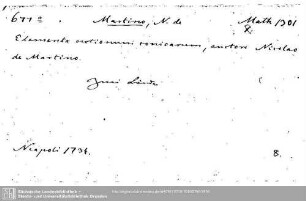 Martino, N. de Math 1301
Elementa sectionum conicarum, auctore Nicolao
de Martino.
Neapoli 1734. 8.
Sächsische Landesbibliothek -
Staats- und Universitätsbibliothek Dresden